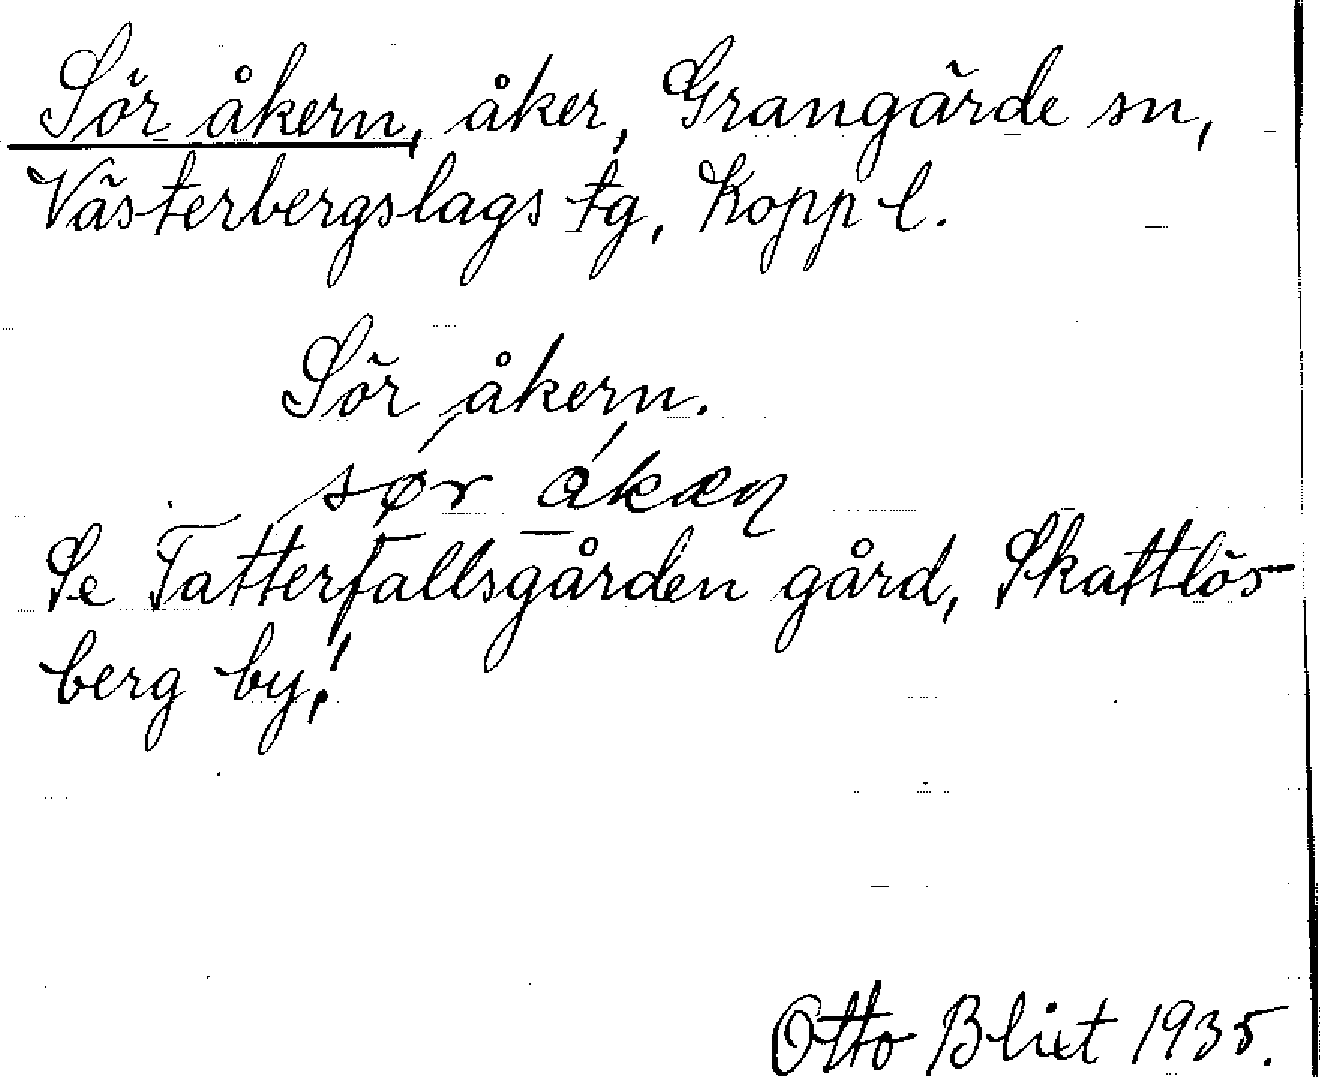 Sör åkern, åker, Grangärde sn,
Västerbergslags tg, Kopp l.
Sör åkern.
sør åkæn
Se Tatterfallsgården gård, Skattlös-
berg by!
Otto Blixt 1935.